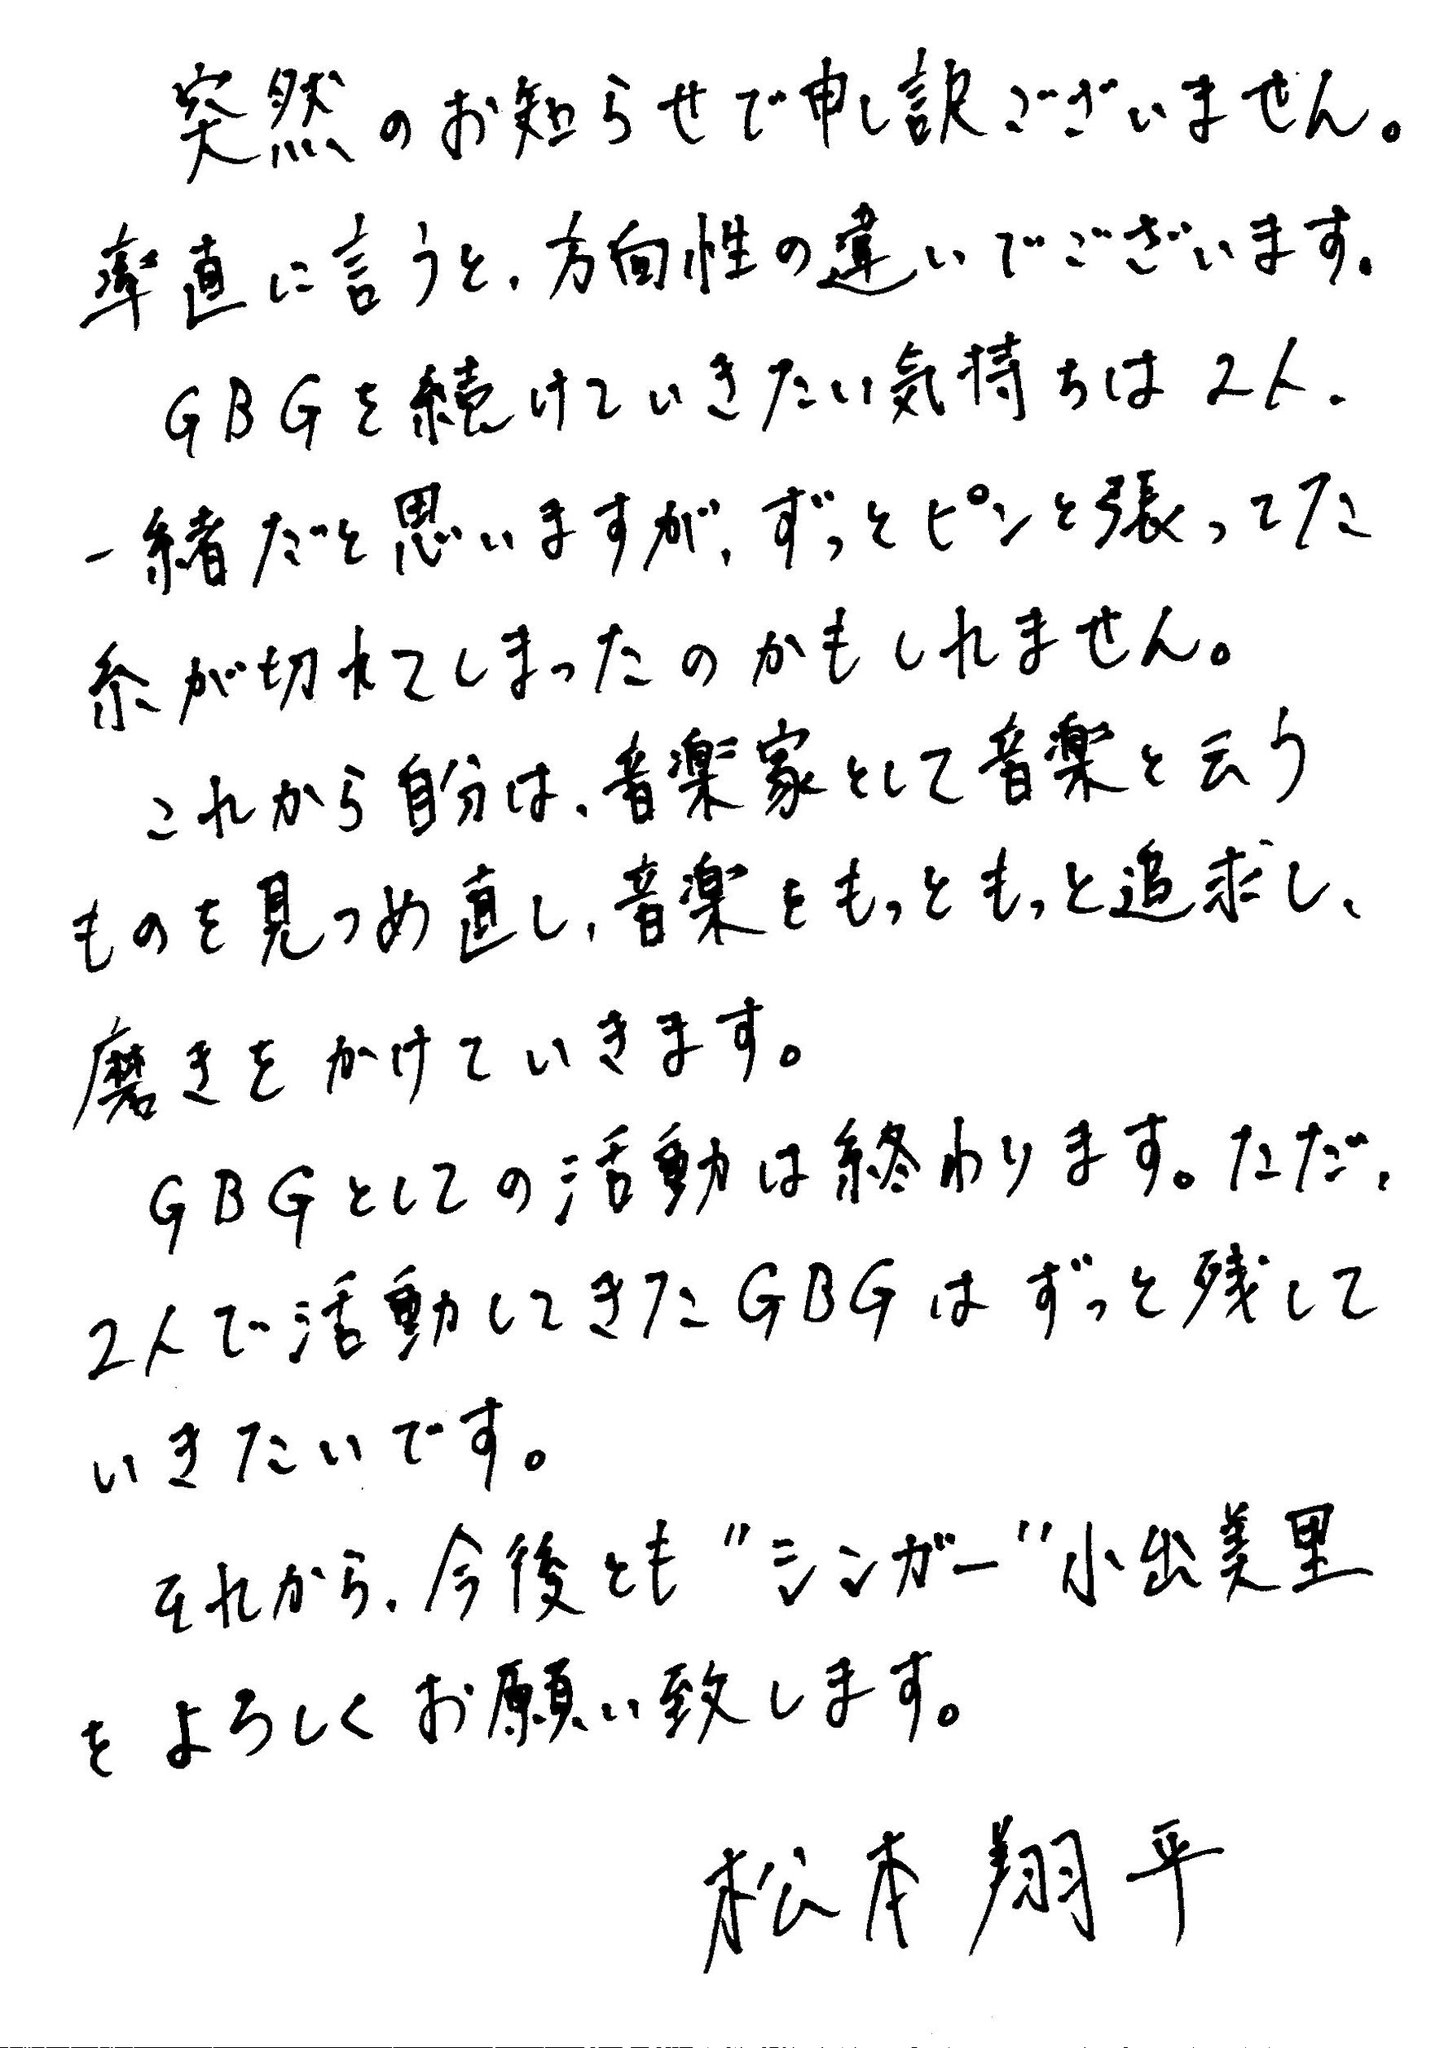 突然のお知らせで申し訳ございません。
率直に言うと、方向性の違いでございます。
GBGを続けていきたい気持ちは2人、
一緒だと思いますが、ずっとピンと張ってた
糸が切れてしまったのかもしれません。
これから自分は、音楽家として音楽と云う
ものを見つめ直し、音楽をもっともっと追求し、
磨きをかけていきます。
GBGとしての活動は終わります。ただ、
2人で活動してきたGBGはずっと残して
いきたいです。
それから、今後とも"シンガー"小出美里
をよろしくお願い致します。
松本翔平